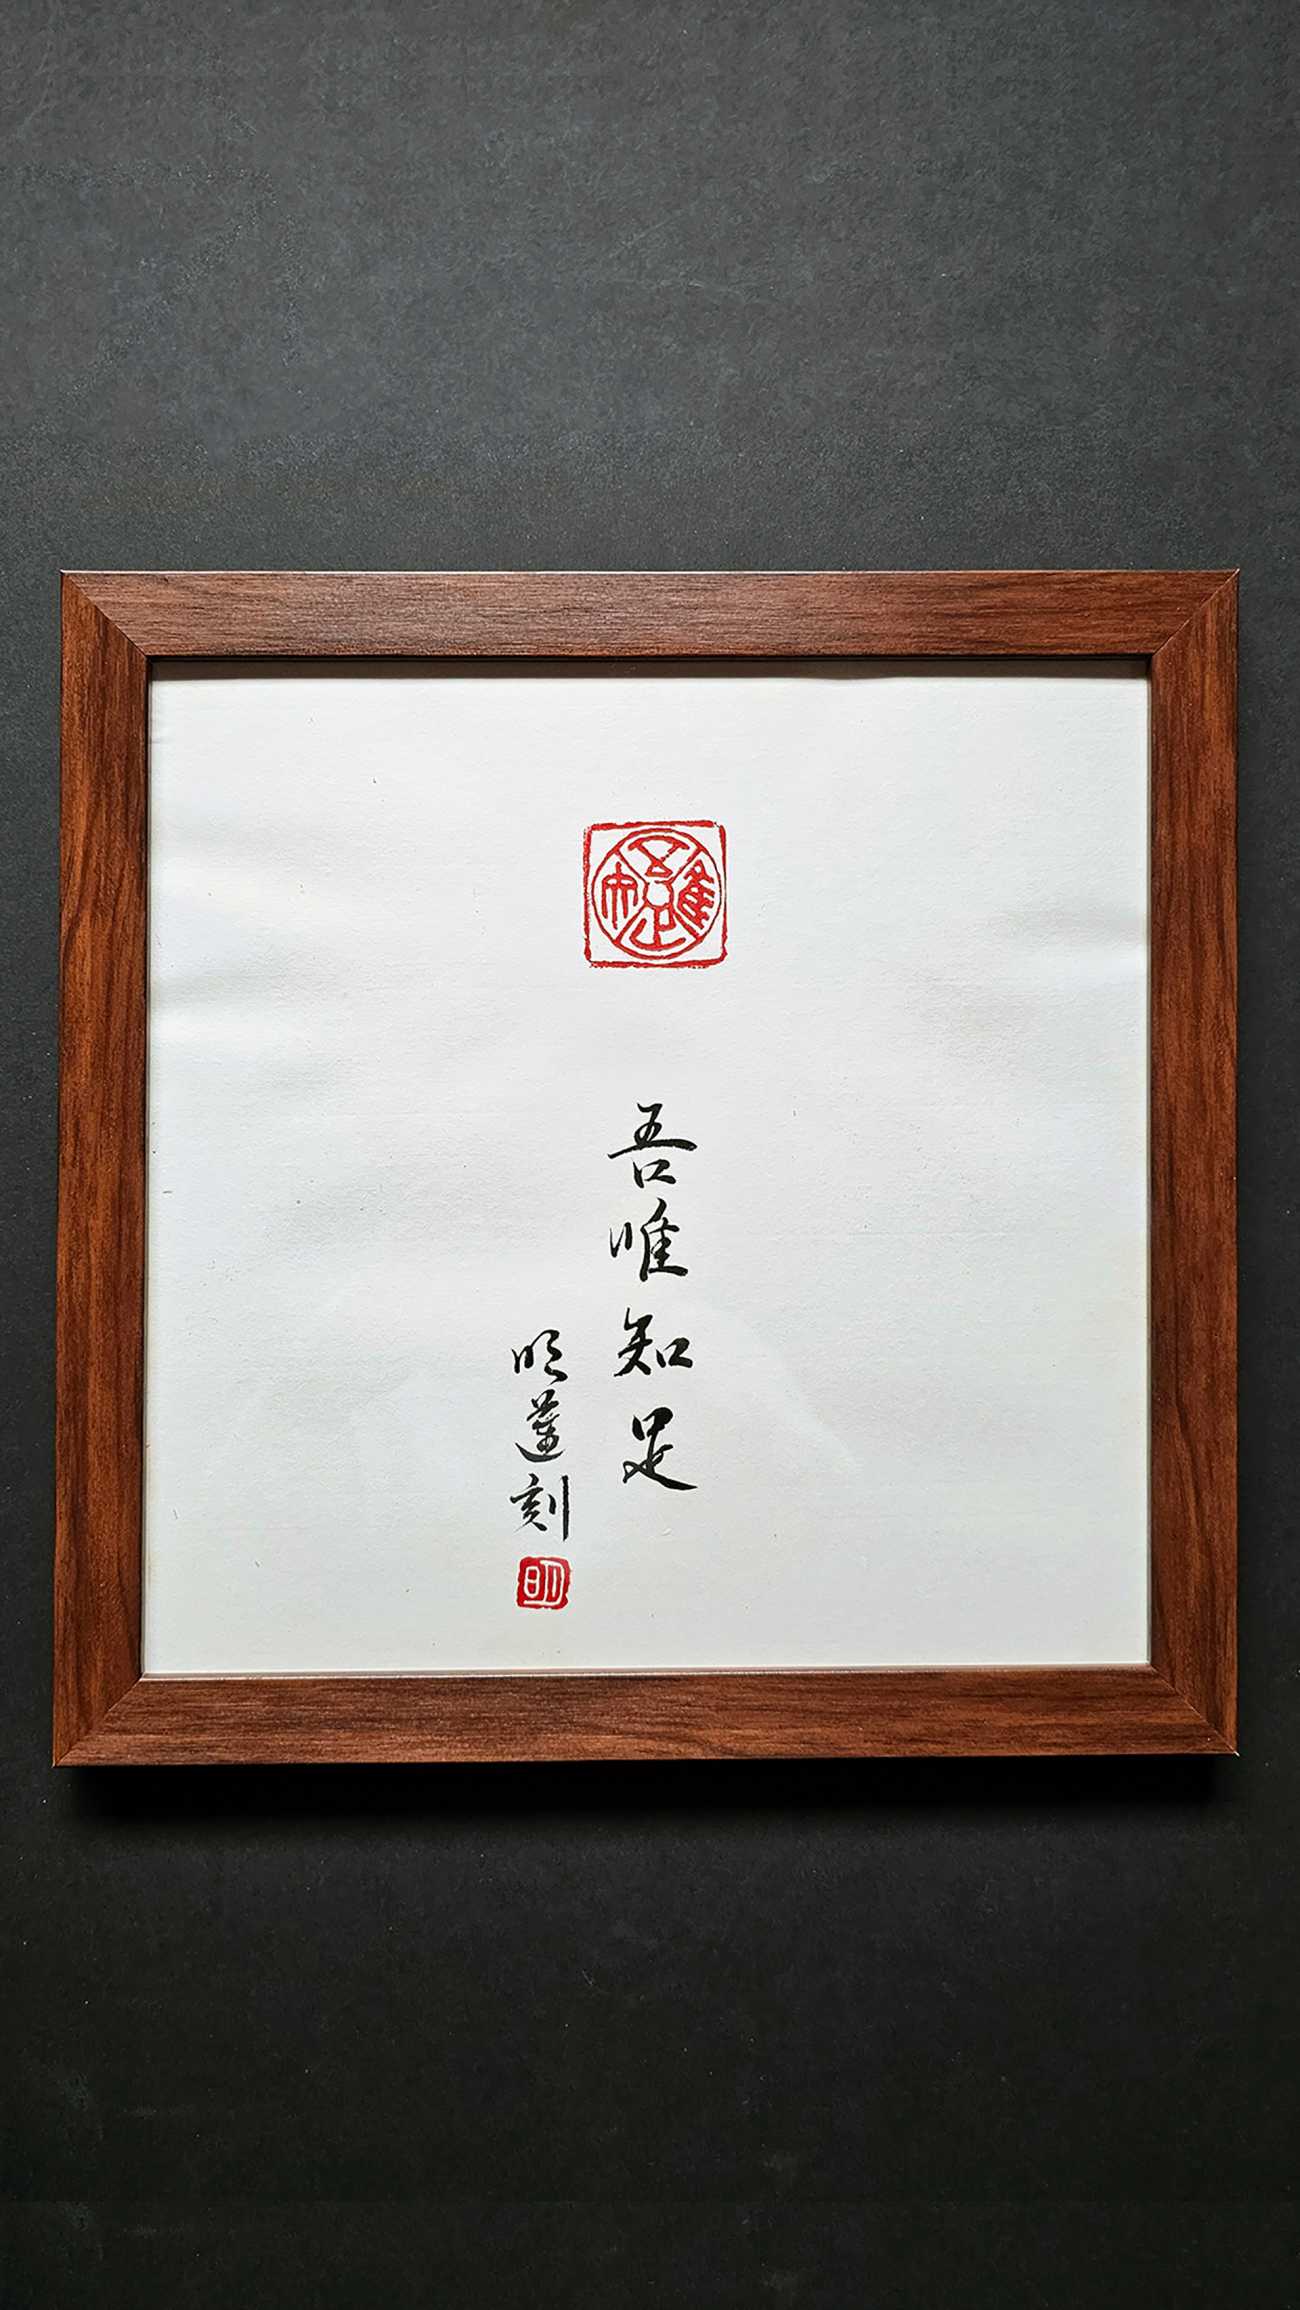 吾唯知足
吾唯知足
明蓮刻
明